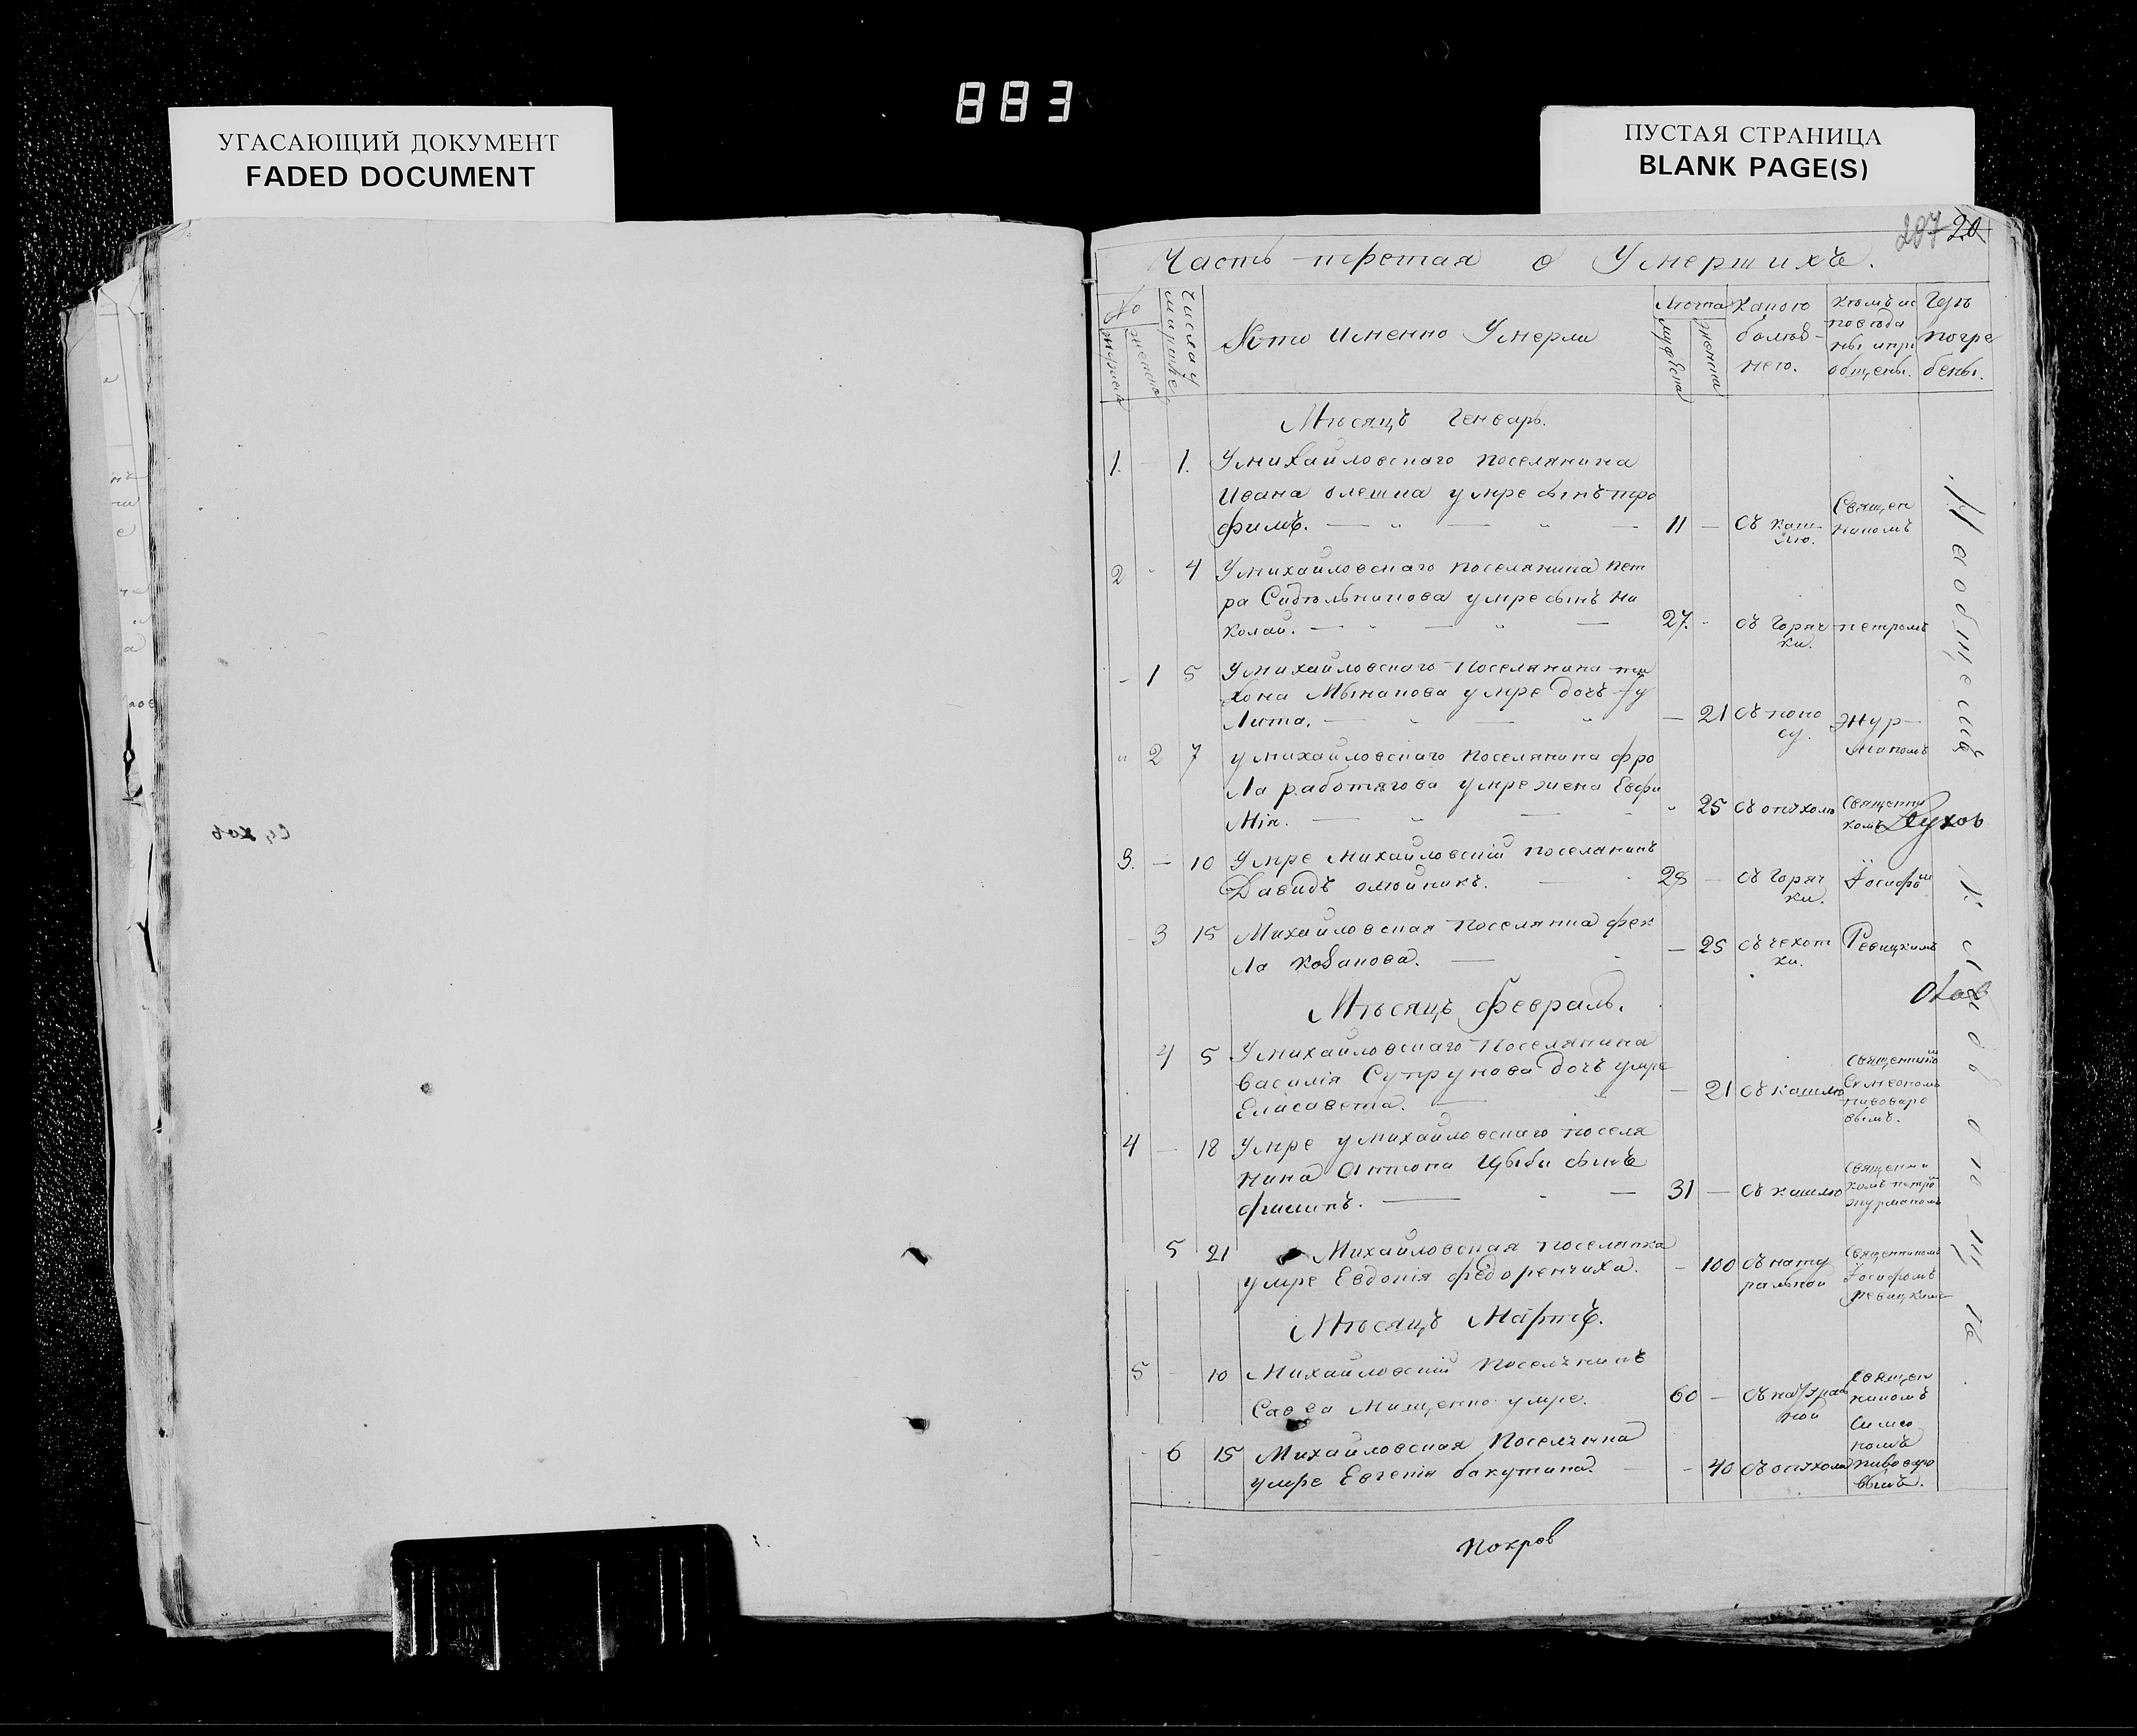 883
УГАСАЮЩИЙ ДОКУМЕНТ
FADED DOCUMENT
ПУСТАЯ СТРАНИЦА
BLANK PAGE(S)
207 20
Часть третая о Умершихъ.
№
Число у
мужеск
женско
Кто именно Умерли
Лѣта
мужеска
женска
Какою
болѣз-
нею.
Кѣмъ ис
повѣда
ны и прі
общены.
Гдѣ
погре
бены.
Мѣсяцъ Генварь.
1. - 1. У михайловскаго поселянина
Ивана олешка умре сынъ тро
фимъ. 11 - Съ каш
лю. Священ
никомъ
2 - 4 У михайловскаго поселянина пет
ра Сидѣльникова умре сынъ ни
колай. 27. - Съ Горяч
ки. петромъ
- 1 5 У михайловскаго поселянина ти
хона Мынакова умре дочъ Iу
лита. - 21 Съ поно
су. Жур-
маномъ
" 2 7 у михайловскаго поселянина фро
ла работягова умре жена Евфи
мія. - 25 Съ опухолю Священни
комъ
Духов
3. - 10 Умре михайловскій поселянинъ
Давидъ олюйникъ. 28 - Съ Горяч
ки. Iосифом
- 3 15 Михайловская поселянка фек
ла кованова. - 25 Съ чехот
ки. Ревицкимъ
Мѣсяцъ февраль.
4 5 У михайловскаго поселянина
василія Супрунова дочъ умре
Елисавета. - 21 Съ кашлю Священником
Симеономъ
пивоваро
вымъ.
4 - 18 Умре у михайловскаго поселя
нина Антона Цыбы сынъ
филипъ. 31 - Съ кашлю Священни
комъ петром
журманомъ
5 21 Михайловская поселянка
умре Евдокія федоренчиха. - 100 Съ нату
ральной Священникомъ
Iосифомъ
ревицким
Мѣсяцъ Мартъ.
5 - 10 Михайловскій поселянинъ
Савва Мищенко умре. 60 - Съ натурал
ной Священ
никомъ
- 6 15 Михайловская поселянка
умре Евгенія бакутина. - 40 Съ опухоли Симео
номъ
пивоваро
вымъ.
На общемъ
кладбищѣ
покров